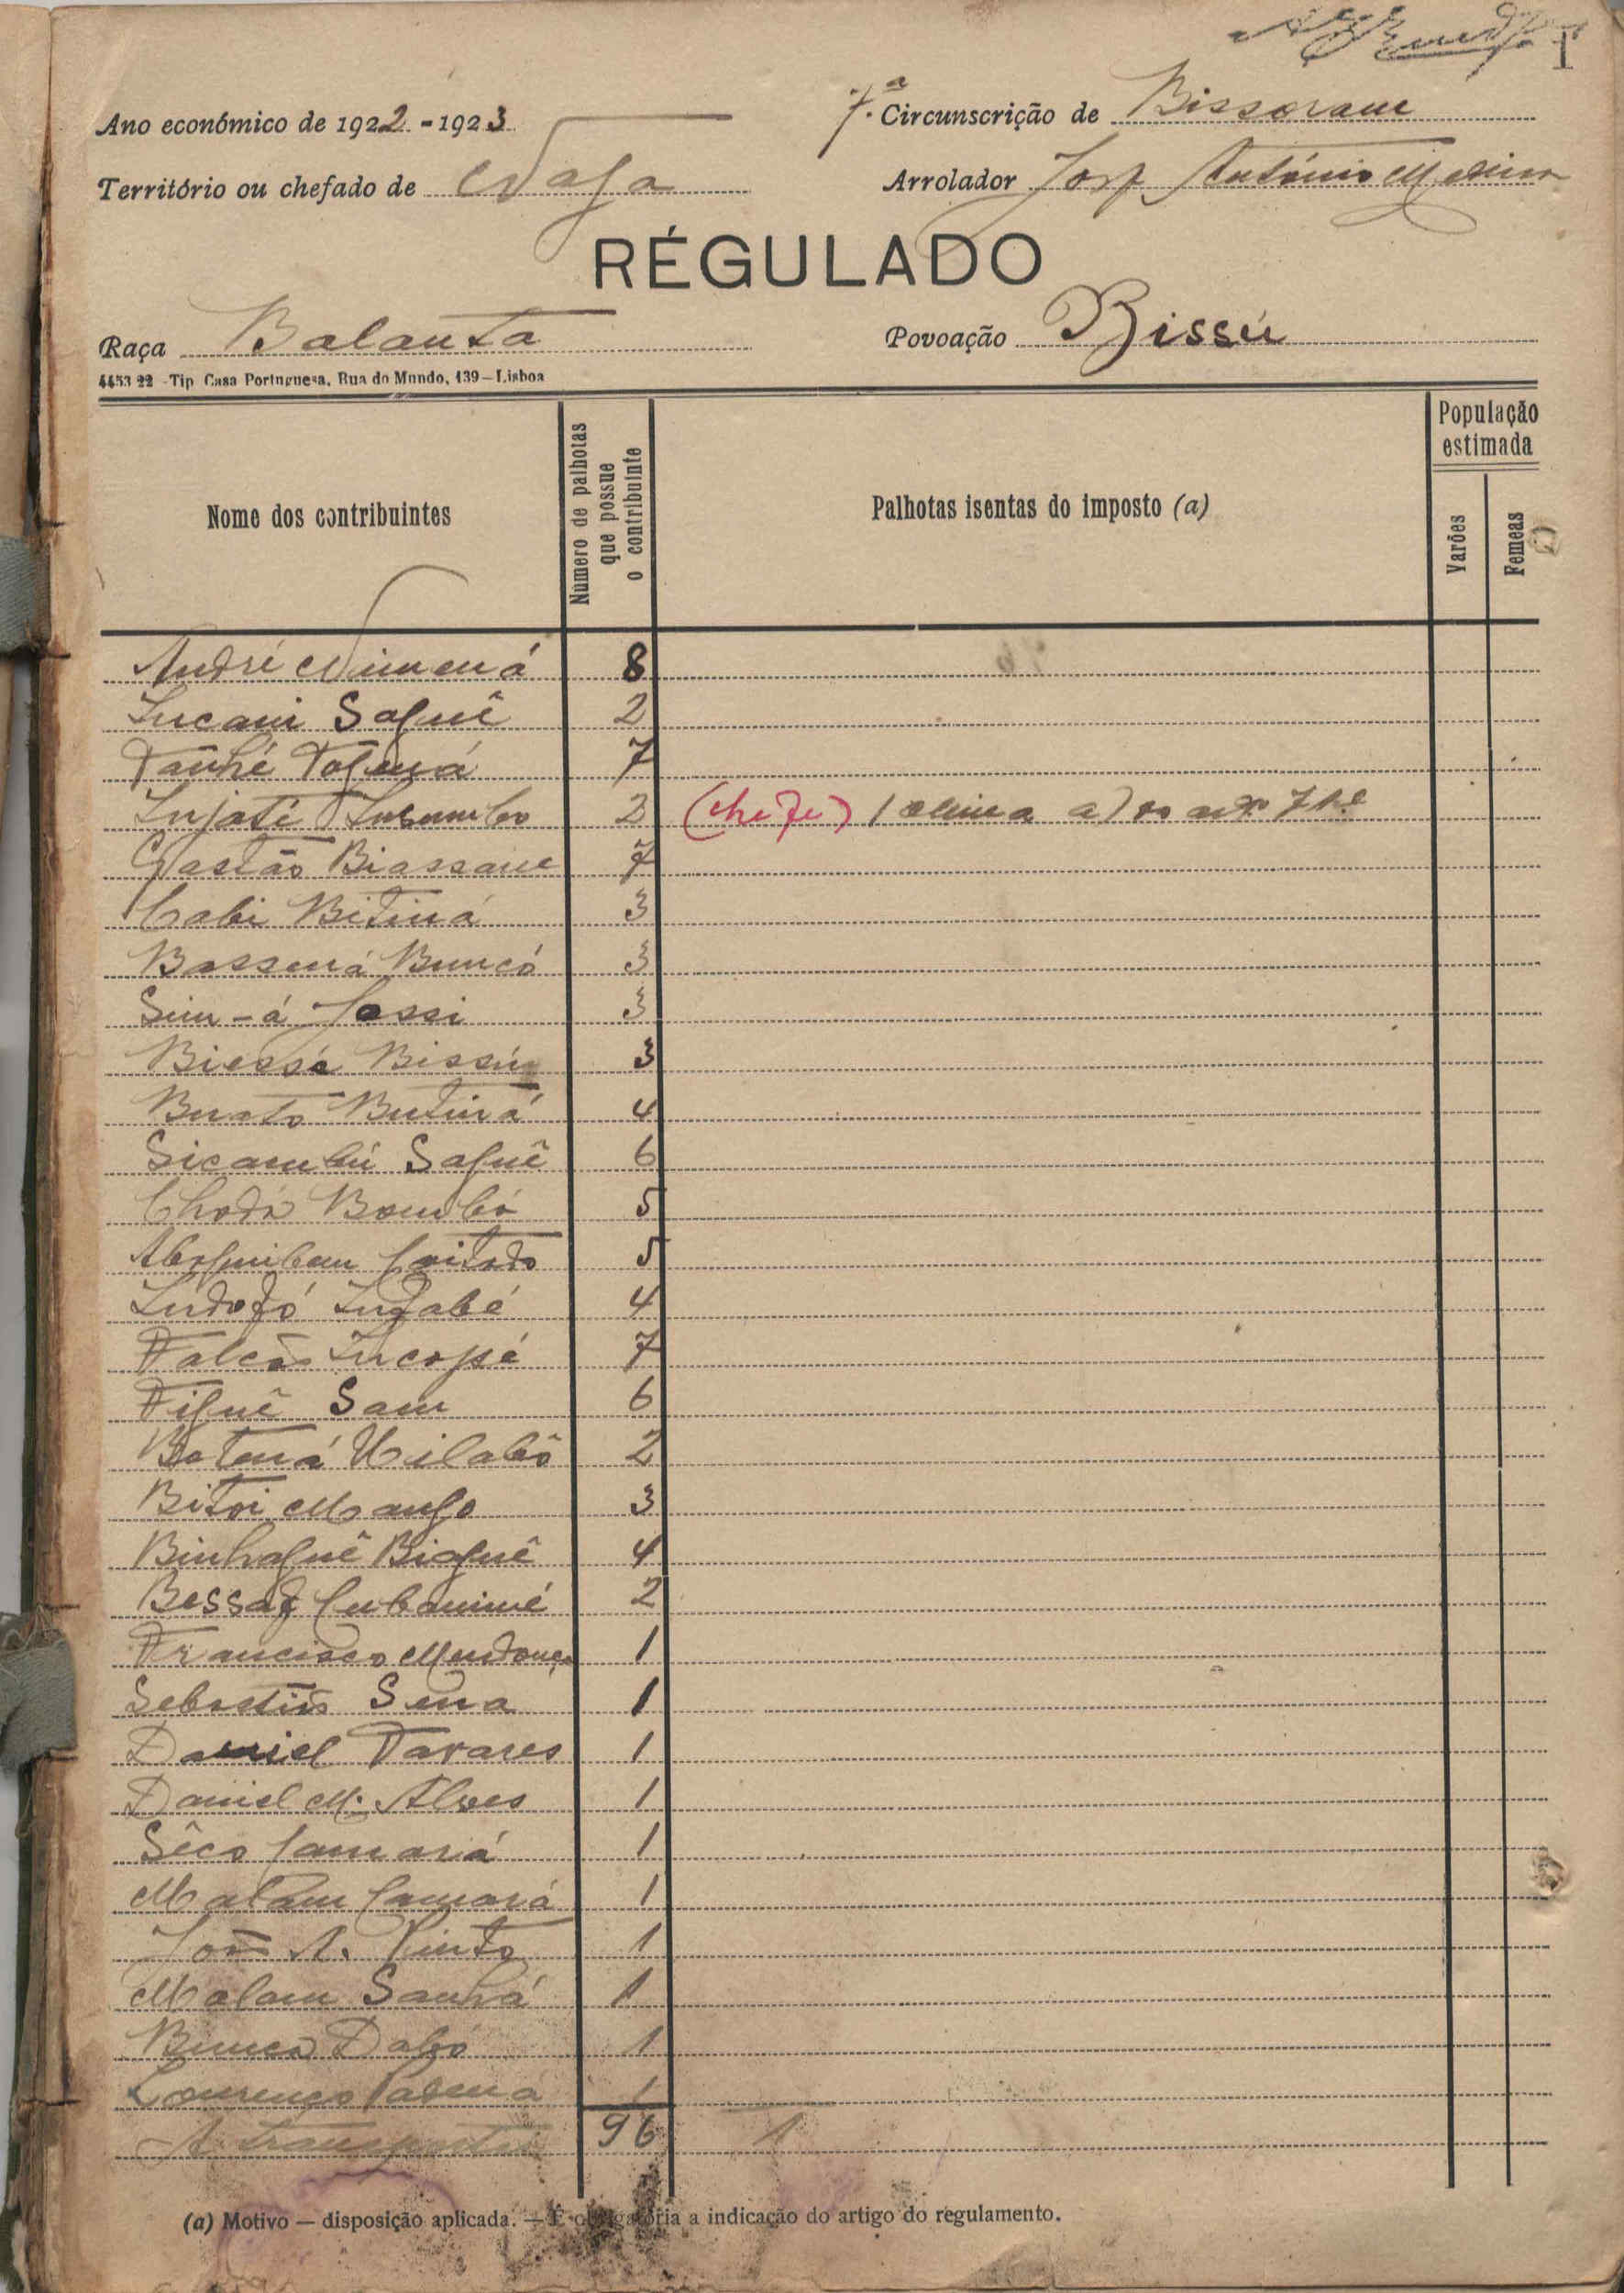 1
Ano económico de 1922-1923
7.ª Circunscrição de Bissoram
Território ou chefado de Naga
Arrolador José António Medina
RÉGULADO
Raça Balanta
Povoação Bissú
4453 22 - Tip. Casa Portuguesa, Rua do Mundo, 139 — Lisboa
Nome dos contribuintes
Número de palhotas que possue o contribuinte
Palhotas isentas do imposto (a)
População estimada
Varões
Femeas
André 8
Lucam Safuê 2
Tanhé 7
2 (chefe) 1 alinea a) do art.º 7
Gastão Biassam 7
Cabi Bitiná 3
Bassená Buncó 3
Sim-á Jassi 3
Biessá Bissú 3
4
Sicambú Safuê 6
Chodá Bombó 5
5
4
Falcão 7
Fifuê Sam 6
2
Bitoi Manfo 3
Binhafuê Biafuê 4
2
Francisco Mendonça 1
Sebastião Sena 1
Daniel Tavares 1
Daniel M. Alves 1
Sêco Camará 1
Malam Camará 1
João A. Pinto 1
Malam Sanhá 1
Bunca Dabó 1
Lourenço 1
A transportar 96 1
(a) Motivo — disposição aplicada. — É obrigatória a indicação do artigo do regulamento.